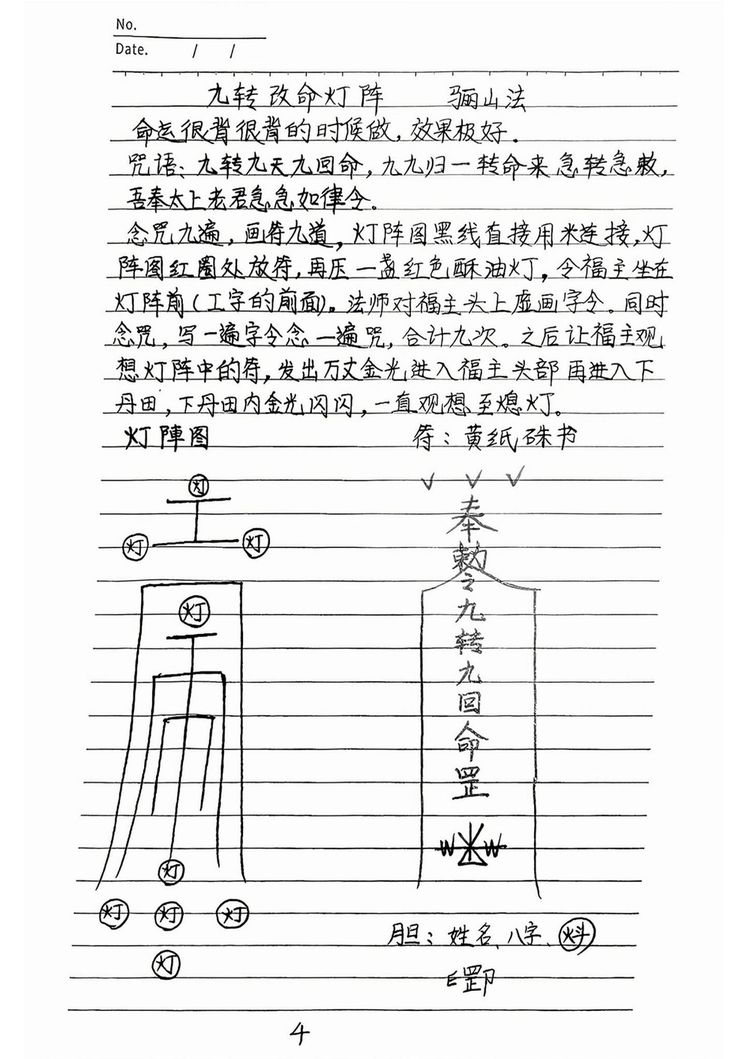 No.
Date. / /
九转改命灯阵 骊山法
命运很背很背的时候做，效果极好。
咒语：九转九天九回命，九九归一转命来急转急敕，
吾奉太上老君急急如律令。
念咒九遍，画符九道，灯阵图黑线直接用米连接，灯
阵图红圈处放符，再压一盏红色酥油灯，令福主坐在
灯阵前（工字的前面）。法师对福主头上虚画字令。同时
念咒，写一遍字令念一遍咒，合计九次。之后让福主观
想灯阵中的符，发出万丈金光进入福主头部再进入下
丹田，下丹田内金光闪闪，一直观想至熄灯。
灯陣图 符：黄纸硃书
灯
灯 灯
灯
灯
灯 灯 灯
灯
奉
敕
令
九
转
九
回
命
罡
胆：姓名、八字、
4